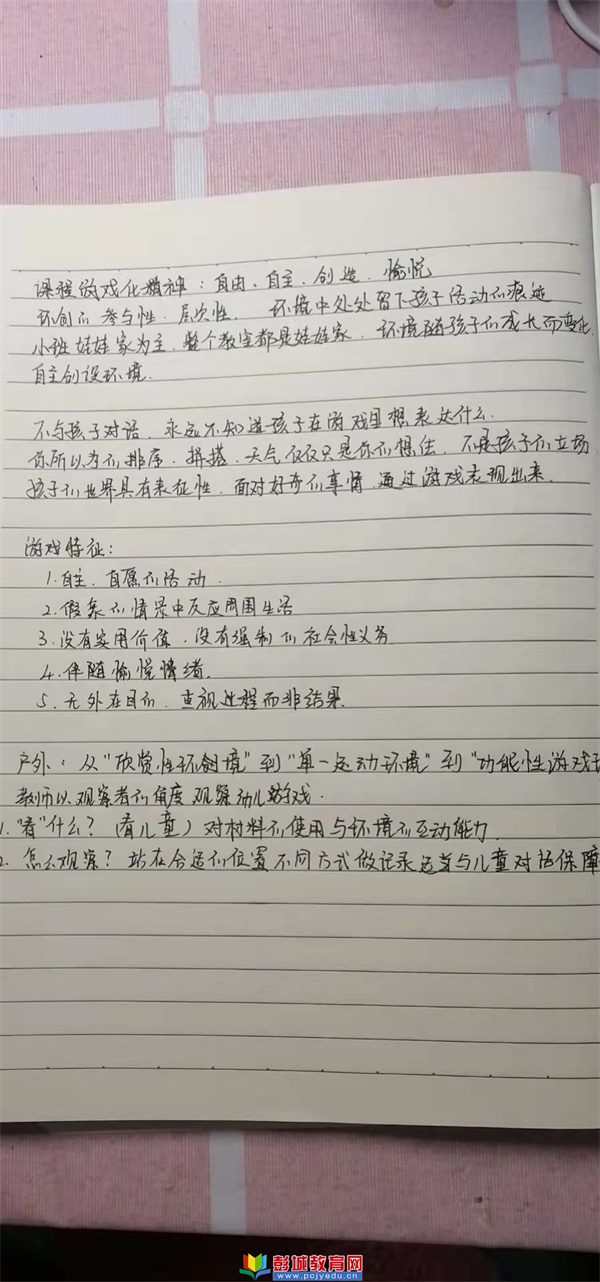 课程游戏化精神：自由、自主、创造、愉悦
环创的参与性、层次性. 环境中处处留下孩子活动的痕迹
小班娃娃家为主、整个教室都是娃娃家. 环境随孩子的成长而变化
自主创设环境.
不与孩子对话、永远不知道孩子在游戏里想表达什么.
你所以为的排序、拼搭、天气仅仅只是你的想法、不是孩子的立场
孩子的世界具有表征性、面对好奇的事情通过游戏表现出来.
游戏特征：
1.自主、自愿的活动.
2.假象的情景中反应周围生活
3.没有实用价值、没有强制的社会性义务
4.伴随愉悦情绪.
5.无外在目的、重视过程而非结果.
户外：从“欣赏性环创境”到“单一运动环境”到“功能性游戏
教师以观察者的角度观察幼儿游戏.
1.“看”什么？（看儿童）对材料的使用与环境的互动能力.
2.怎么观察？站在合适的位置不同方式做记录适当与儿童对话保障
彭城教育网
www.pcjyedu.cn